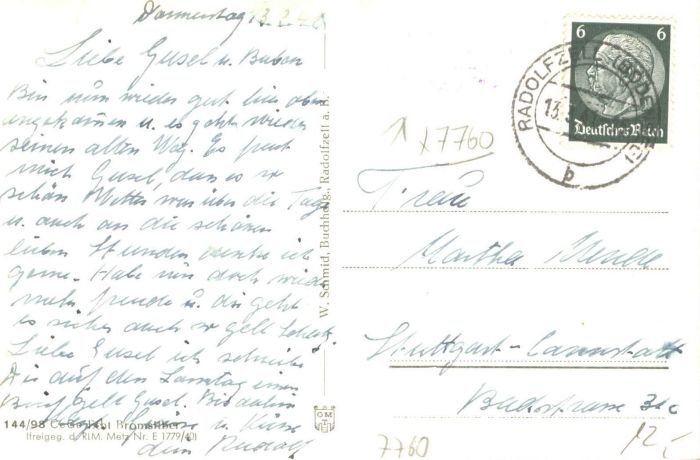 Donnerstag 13.2.4
Liebe Gusel u. Buben
Bin nun wieder gut hier oben
angekommen u. es geht wieder
seinen alten Weg. Es freut
mich Gusel, dass es so
schön Wetter war über die Tage
u. auch an die schönen
lieben Stunden denke ich
gerne. Habe nun doch wieder
mehr Freude u. dir geht
es sicher auch so gell
Liebe Gusel ich schreibe
Dir auf den Samstag einen
Brief gell Gusel. Bis dahin
u. Küsse
dein Rudolf
144/98
(freigeg. d. RLM. Metz Nr. E 1779/40)
W. Schmid, Buchhdlg., Radolfzell a. B.
6 6
Deutsches Reich
RADOLFZELL
13.
b
x7760
Frau
Martha
Stuttgart-Cannstatt
Badstrasse 31c
7760
12,-